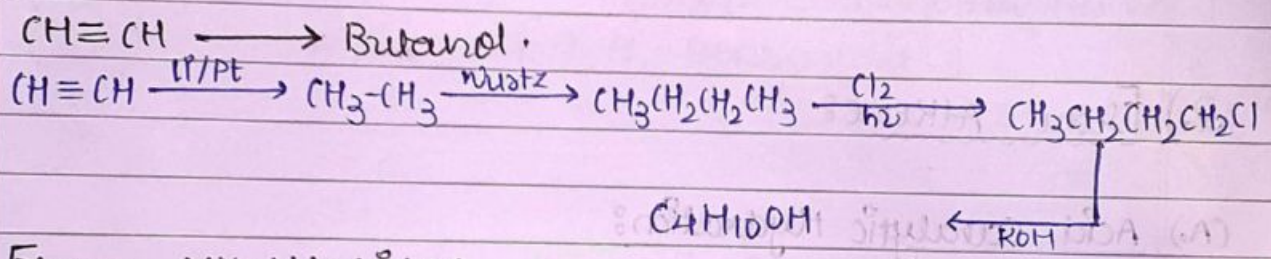 CH≡CH ⟶ Butanol.
CH≡CH —Li/Pt→ CH3-CH3 —Wurtz→ CH3CH2CH2CH3 —Cl2/hν→ CH3CH2CH2CH2Cl
C4H10OH ←KOH—